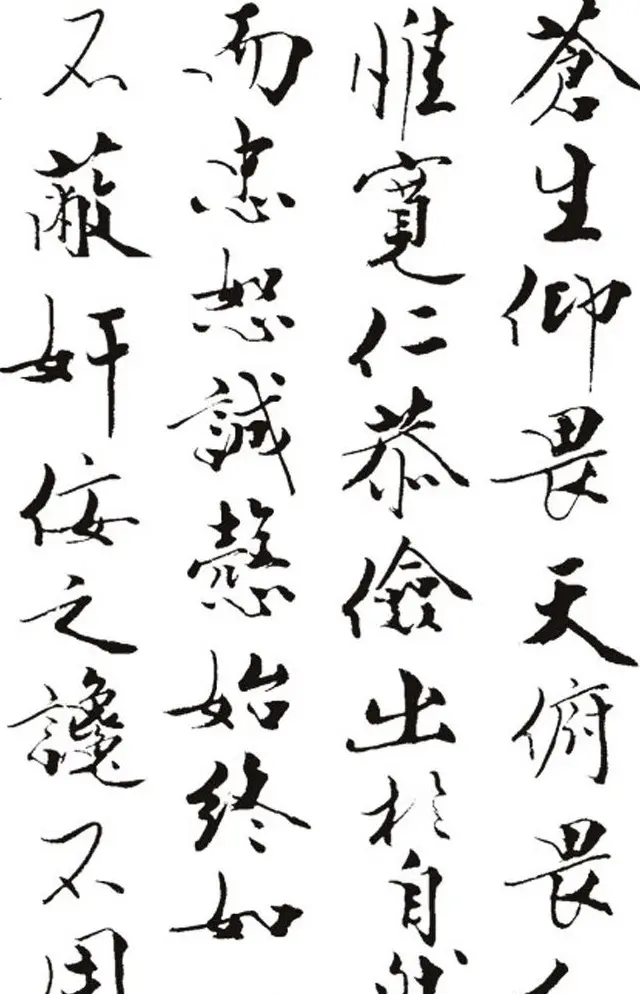 蒼生仰畏天俯畏
惟寬仁恭儉出於自然
而忠恕誠慤始終如
不蔽奸佞之讒不